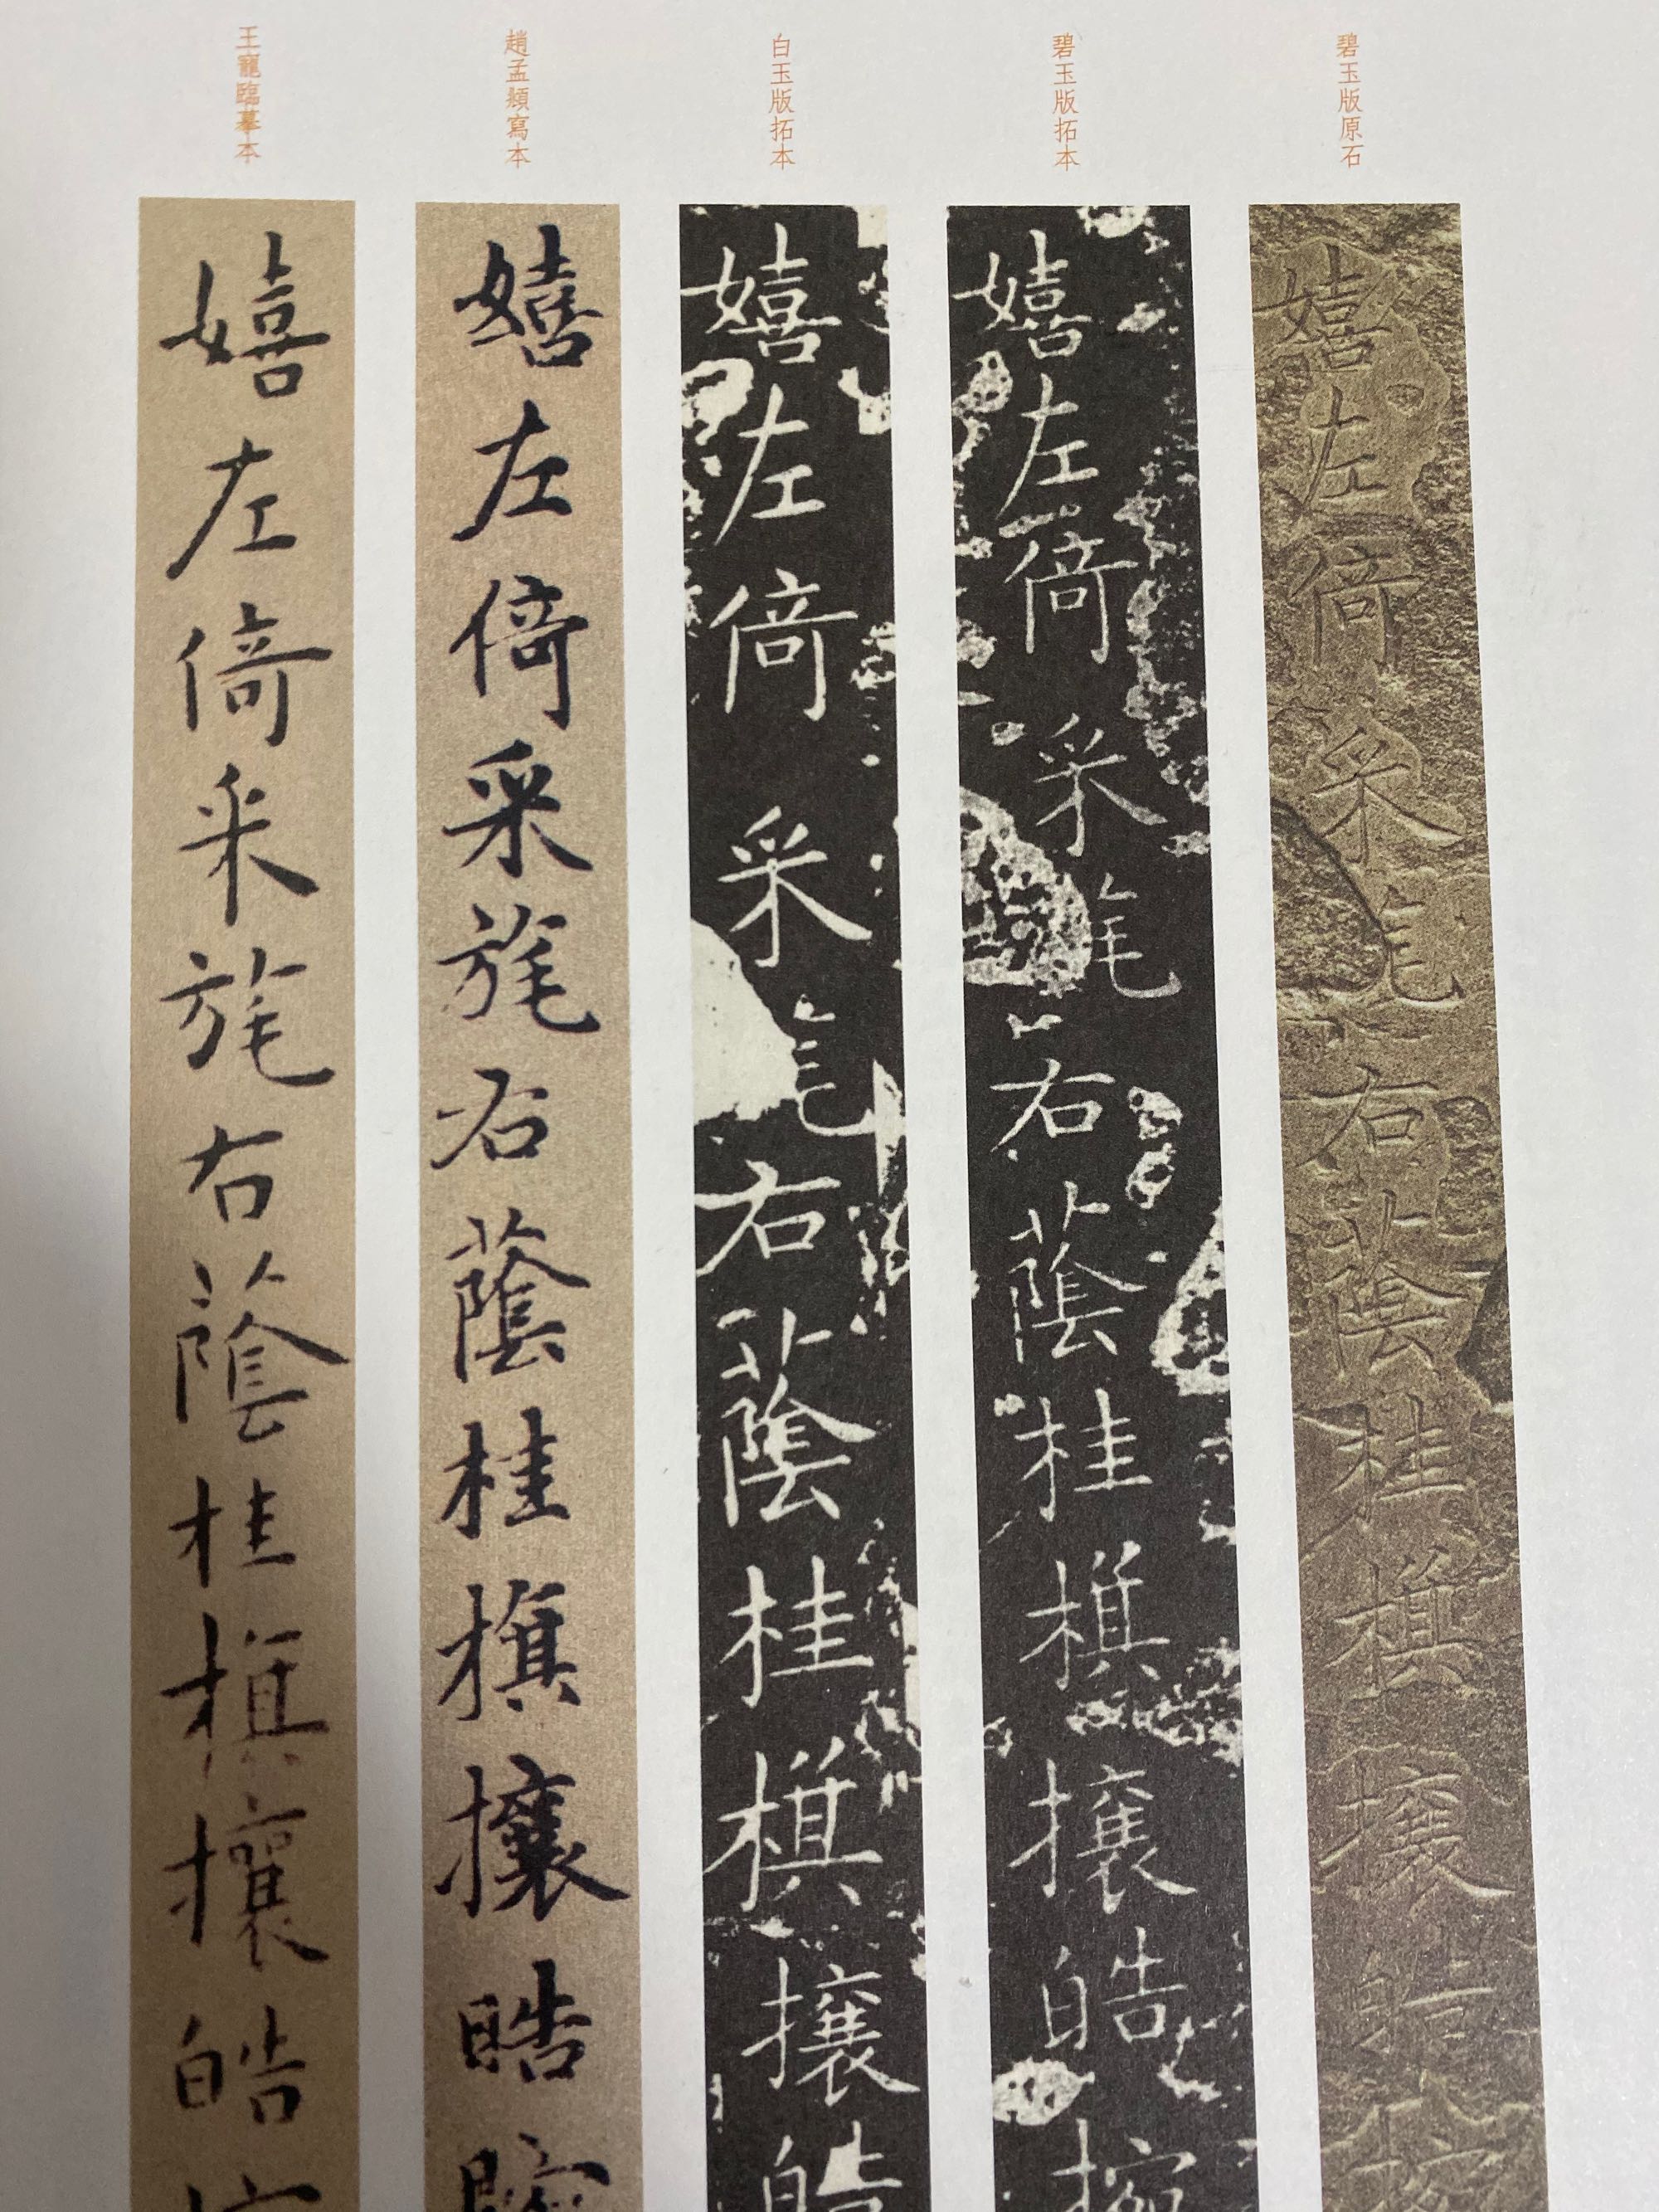 碧玉版原石
嬉左倚采旄右蔭桂旗攘皓腕
碧玉版拓本
嬉左倚采旄右蔭桂旗攘皓腕
白玉版拓本
嬉左倚采旄右蔭桂旗攘皓
趙孟頫寫本
嬉左倚采旄右蔭桂旗攘皓腕
王寵臨摹本
嬉左倚采旄右蔭桂旗攘皓